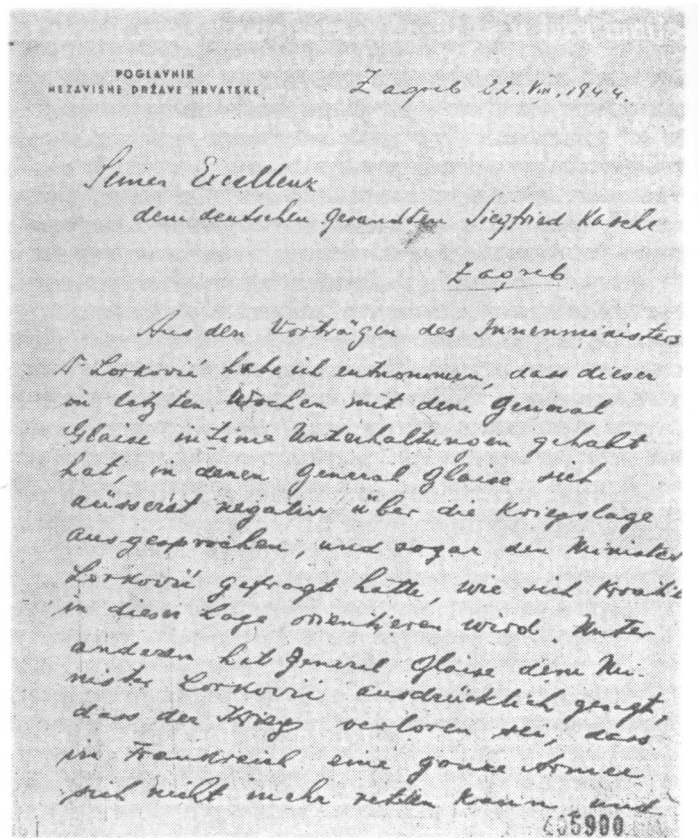 POGLAVNIK
NEZAVISNE DRŽAVE HRVATSKE
Zagreb 22. VIII. 1944.
Seiner Excellenz
dem deutschen Gesandten Siegfried Kasche
Zagreb
Aus den Vorträgen des Innenministers
Dr Lorković habe ich entnommen, dass dieser
in letzten Wochen mit dem General
Glaise intime Unterhaltungen gehabt
hat, in denen General Glaise sich
äusserst negativ über die Kriegslage
ausgesprochen, und sogar den Minister
Lorković gefragt hatte, wie sich
in dieser Lage orientieren wird. Unter
anderen hat General Glaise dem Mi-
nister Lorković ausdrücklich gesagt,
dass der Krieg verloren sei, dass
in Frankreich eine ganze Armee
sich nicht mehr retten kann und
5900